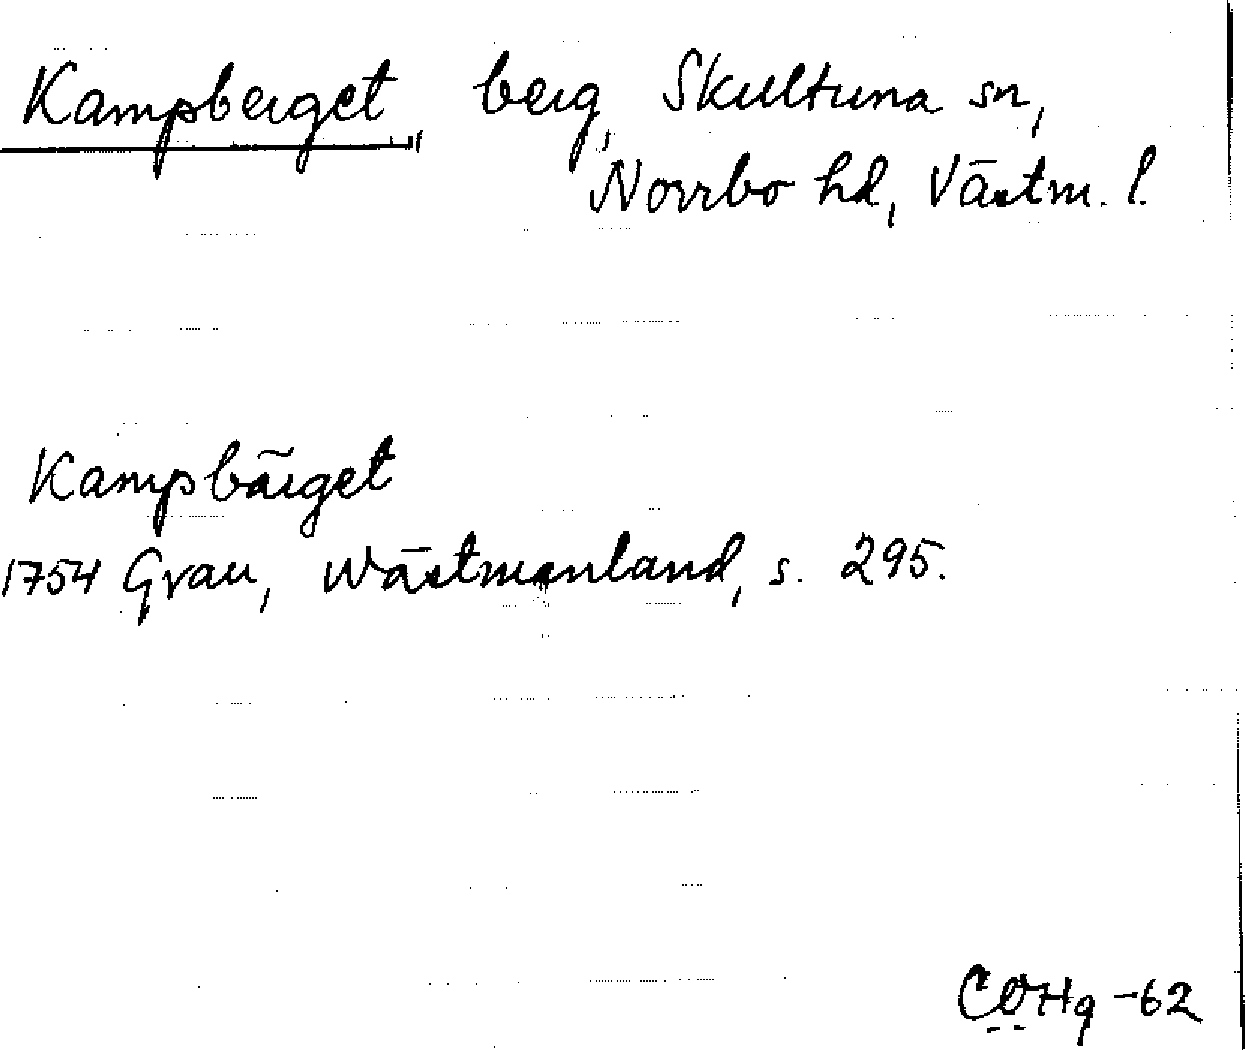 Kampberget berg, Skultuna sn,
Norrbo hd, Västm. l.
Kampbärget
1754 Grau, Wästmanland, s. 295.
COHg -62